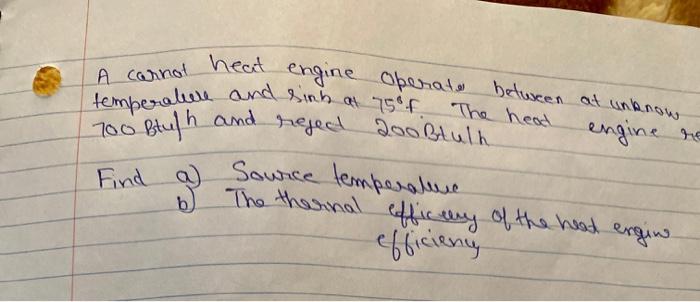 A carnot heat engine operate between at unknow
temperature and sink at 75°f. The heat engine re
700 Btu/h and reject 200Btu/h
Find a) Source temperature
b) The thermal efficieny of the heat engine
efficieny